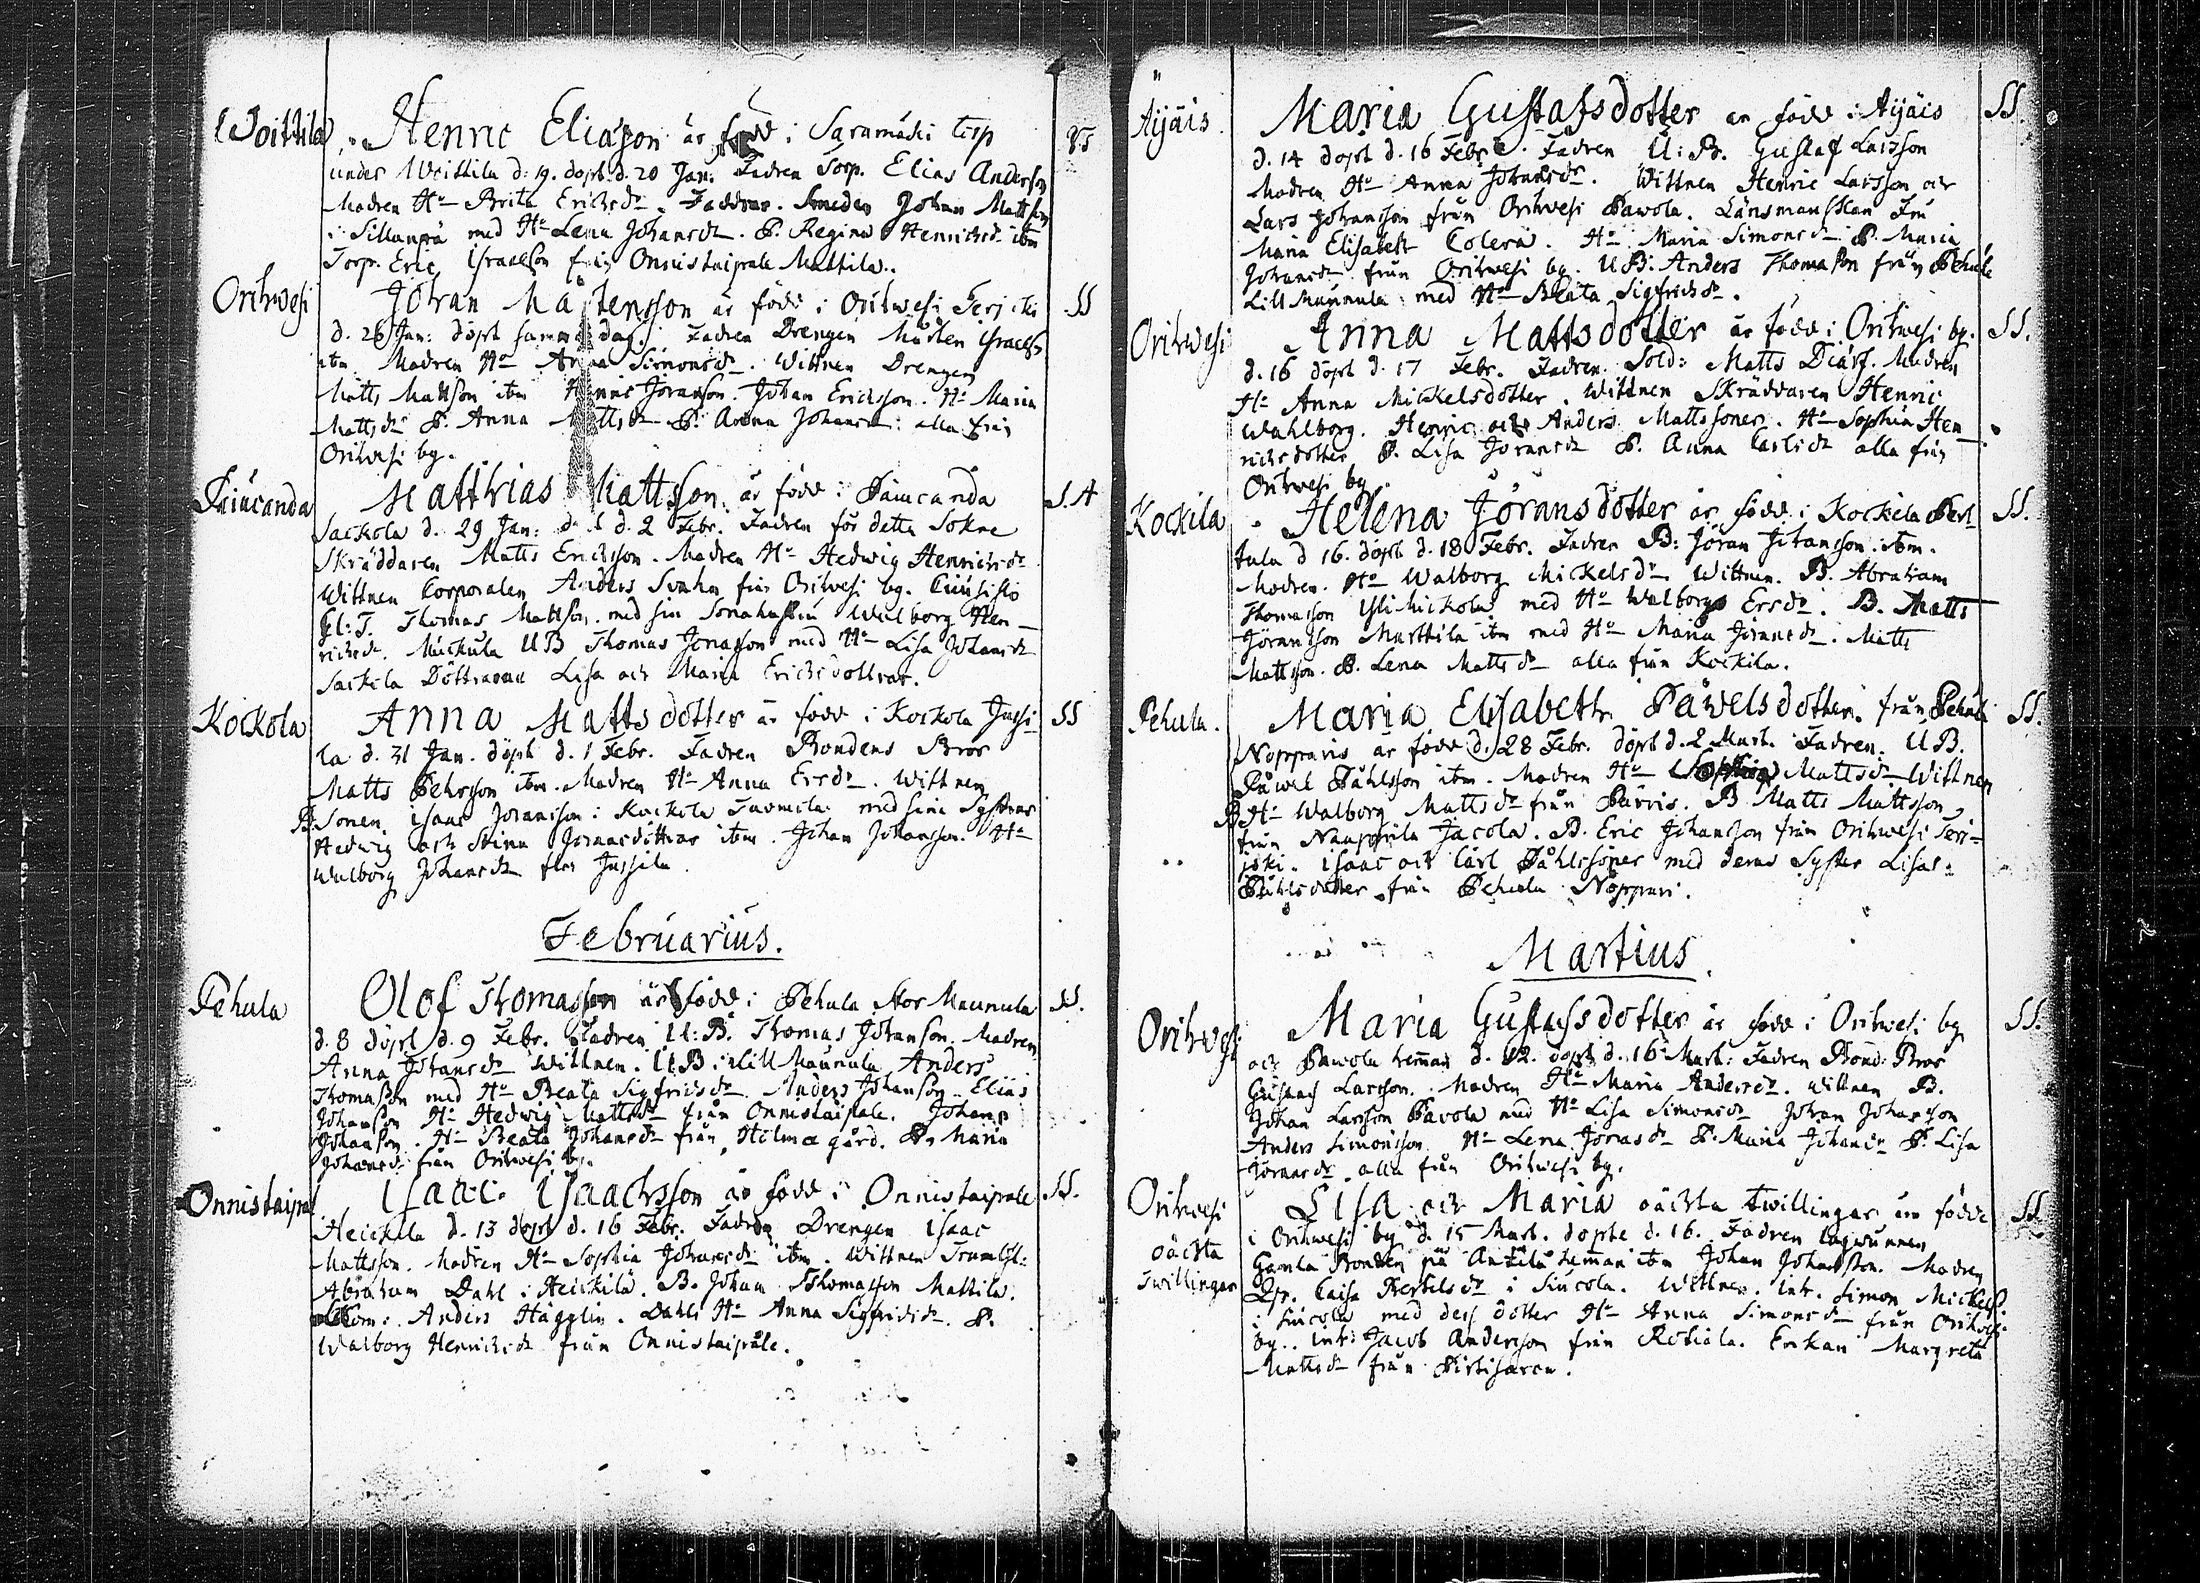 Woittila Henric Eliasson är född i Saramäki torp VS
under Woittila d. 19. döpt d. 20 Jan. Fadren Torp. Elias Anderson
Modren Ho Brita Erichsdr. Faddrar. Smeden Johan Mattsson
i Sillanpä med Ho Lena Johansdr. P. Regina Henrichsdr ibm
Torp. Eric Israelson från Onnistaipale Mattila.
Orihwesi Johan Mårtensson är född i Orihwesi Serjoki SS
d. 26 Jan: döpt samma dag. Fadren Drengen Mårten Israelss.
ibm Modren Ho Anna Simonsdr. Wittnen Drengen
Matts Mattson ibm Henric Jöranson. Johan Ericsson. Ho Maria
Mattsdr P. Anna Mattsdr P. Anna Johansdr: alla från
Orihwesi by.
Päiucanda Matthias Mattsson är född i Päiucanda S.A
Sackola d. 29 Jan: döpt d. 2 Febr. Fadren för detta Sokne
Skräddaren Matts Ericsson. Modren Ho Hedwig Henrichsdr
Wittnen Corporalen Anders Svahn från Orihwesi by.
Thomas Mattson med sin Sonahustru Walborg Hen-
richsdr. Muckula UB Thomas Jonasson med Ho Lisa Johansdr
Sackila Döttrarna Lisa och Maria Erichsdottrar.
Kockola Anna Mattsdotter är född i Kockola Jussi- SS
la d. 31 Jan. döpt d. 1 Febr. Fadren Bondens Bror
Matts Pehrsson ibm. Modren Ho Anna Ersdr. Wittnen
B: Sonen Isaac Joransson i Kockila Tuomila med sina Systrar
Hedwig och Stina Joransdöttrar ibm. Johan Johansson. Ho
Walborg Johansdr från Jussila.
Februarius.
Pehula Olof Thomasson är född i Pehula Stor Maunula SS.
d. 8 döpt d. 9 Febr. Fadren U: B. Thomas Johanson. Modren
Anna Johansdr Wittnen. U B: Lill Maunula Anders
Thomasson med Ho Beata Sigfridsdr. Anders Johanson. Elias
Johanson Ho Hedwig Mattsdr från Onnistaipale. Johans
Johanson. Ho Beata Johansdr från Hilma gård. P. Maria
Johansdr från Orihwesi by.
Onnistaipal Isaac Isaachsson är född i Onnistaipale SS.
Heickila d. 13 döpt d. 16 Febr. Fadren Drengen Isaac
Mattsson. Modren Ho Sophia Johansdr ibm. Wittnen Trumbsl:
Abraham Dahl i Heickilä. B. Johan Thomasson Mattila.
Anders Hägglin. Dahls Ho Anna Sigfridsdr. P.
Walborg Henrichsdr från Onnistaipale.
Äijäis Maria Gustafsdotter är född i Äijäis SS.
d. 14 döpt d. 16 Febr. Fadren U: B. Gustaf Larsson
Modren Ho Anna Johansdr. Wittnen Henric Larsson och
Lars Johansson från Orihwesi Pawola. Länsmanskan Fru
Maria Elisabeth Colera. Ho Maria Simonsdr P. Maria
Johansdr från Orihwesi by. U B: Anders Thomasson från Pehula
Lill Maunula med Ho Beata Sigfridsdr.
Orihwesi Anna Mattsdotter är född i Orihwesi by. SS.
d. 16 döpt d. 17 Febr. Fadren Sold: Matts Diärf. Modren
Ho Anna Mickelsdotter. Wittnen Skräddaren Henric
Wahlborg. Henric och Anders Mattssoner. Ho Sophia Hen-
richsdotter P. Lisa Joransdr P. Anna Carlsdr alla från
Orihwesi by.
Kockila Helena Jöransdotter är född i Kockila Pert- SS.
tula d 16. döpt d. 18 Febr. Fadren B: Jöran Johansson ibm.
Modren. Ho Walborg Mickelsdr Wittnen. B. Abraham
Thomasson Yli Mickola med Ho Walborg Ersdr. B. Matts
Jöransson Marttila ibm med Ho Maria Joransdr. Matts
Mattsson. P. Lena Mattsdr alla från Kockila.
Pehula. Maria Elisabeth Påwelsdotter från Pehula SS.
Nopparis är född d. 28 Febr. döpt d. 2 Mart. Fadren. U B.
Påwel Påhlsson ibm. Modren Ho Mattsdr Wittnen
B Ho Walborg Mattsdr från Pärris. B Matts Mattsson
från Nauppila Jacola. B. Eric Johansson från Orihwesi Serj-
joki. Isaac och Carl Påhlssöner med deras Syster Lisa
Påhlsdotter från Pehula Noppari.
Martius.
Orihwesi Maria Gustafsdotter är född i Orihwesi by SS.
och Pawola heman d. 12. döpt d. 16 Mart: Fadren Bond: Bror
Gustaf Larsson. Modren Ho Maria Andersdr. Wittnen B.
Johan Larsson Pavola med Ho Lisa Simonsdr Johan Johansson
Anders Simonsson. Ho Lena Jonasdr P. Maria Johansdr P. Lisa
Joransdr. alla från Orihwesi by.
Orihwesi Lisa och Maria oächta twillingar äro födde SS
oächta i Orihwesi by d. 15 Mart. döpte d. 16. Fadren lagwunnen
twillingar Gamla Bonden på Anttila heman ibm Johan Johansson. Modren
Caisa Bertilsdr i Siucola. Wittnen. Inh. Simon Mickels.
i Siucola med dess dotter Ho Anna Simonsdr från Orihwesi
by. Inh: Jacob Andersson från Rotiala. Enkan Margreta
Mattsdr från Pirtisaren.